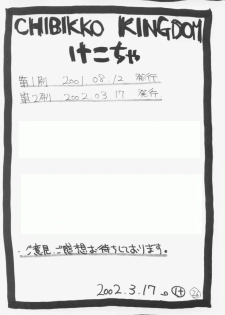 CHIBIKKO KINGDOM
けこちゃ
第1刷 2001.08.12 発行
第2刷 2002.03.17 発行
・ご意見、ご感想お待ちしております。
2002.3.17.